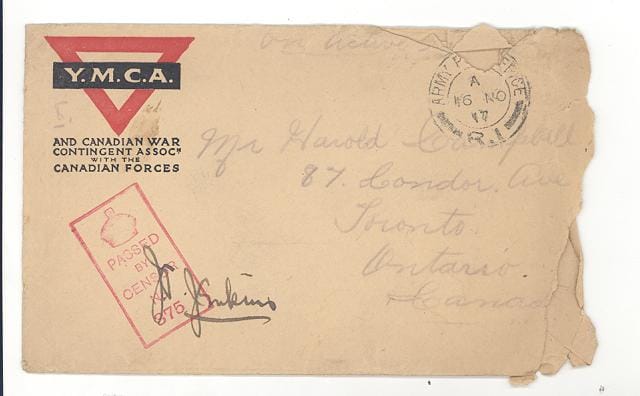 On Active
Y.M.C.A.
AND CANADIAN WAR
CONTINGENT ASSOCN
WITH THE
CANADIAN FORCES
ARMY POST OFFICE
A
16 NO
17
R.1
Mr Harold Campbell
87. Condor. Ave
Toronto.
Ontario.
Canad
PASSED
BY
CENSOR
No
875
Jenkins